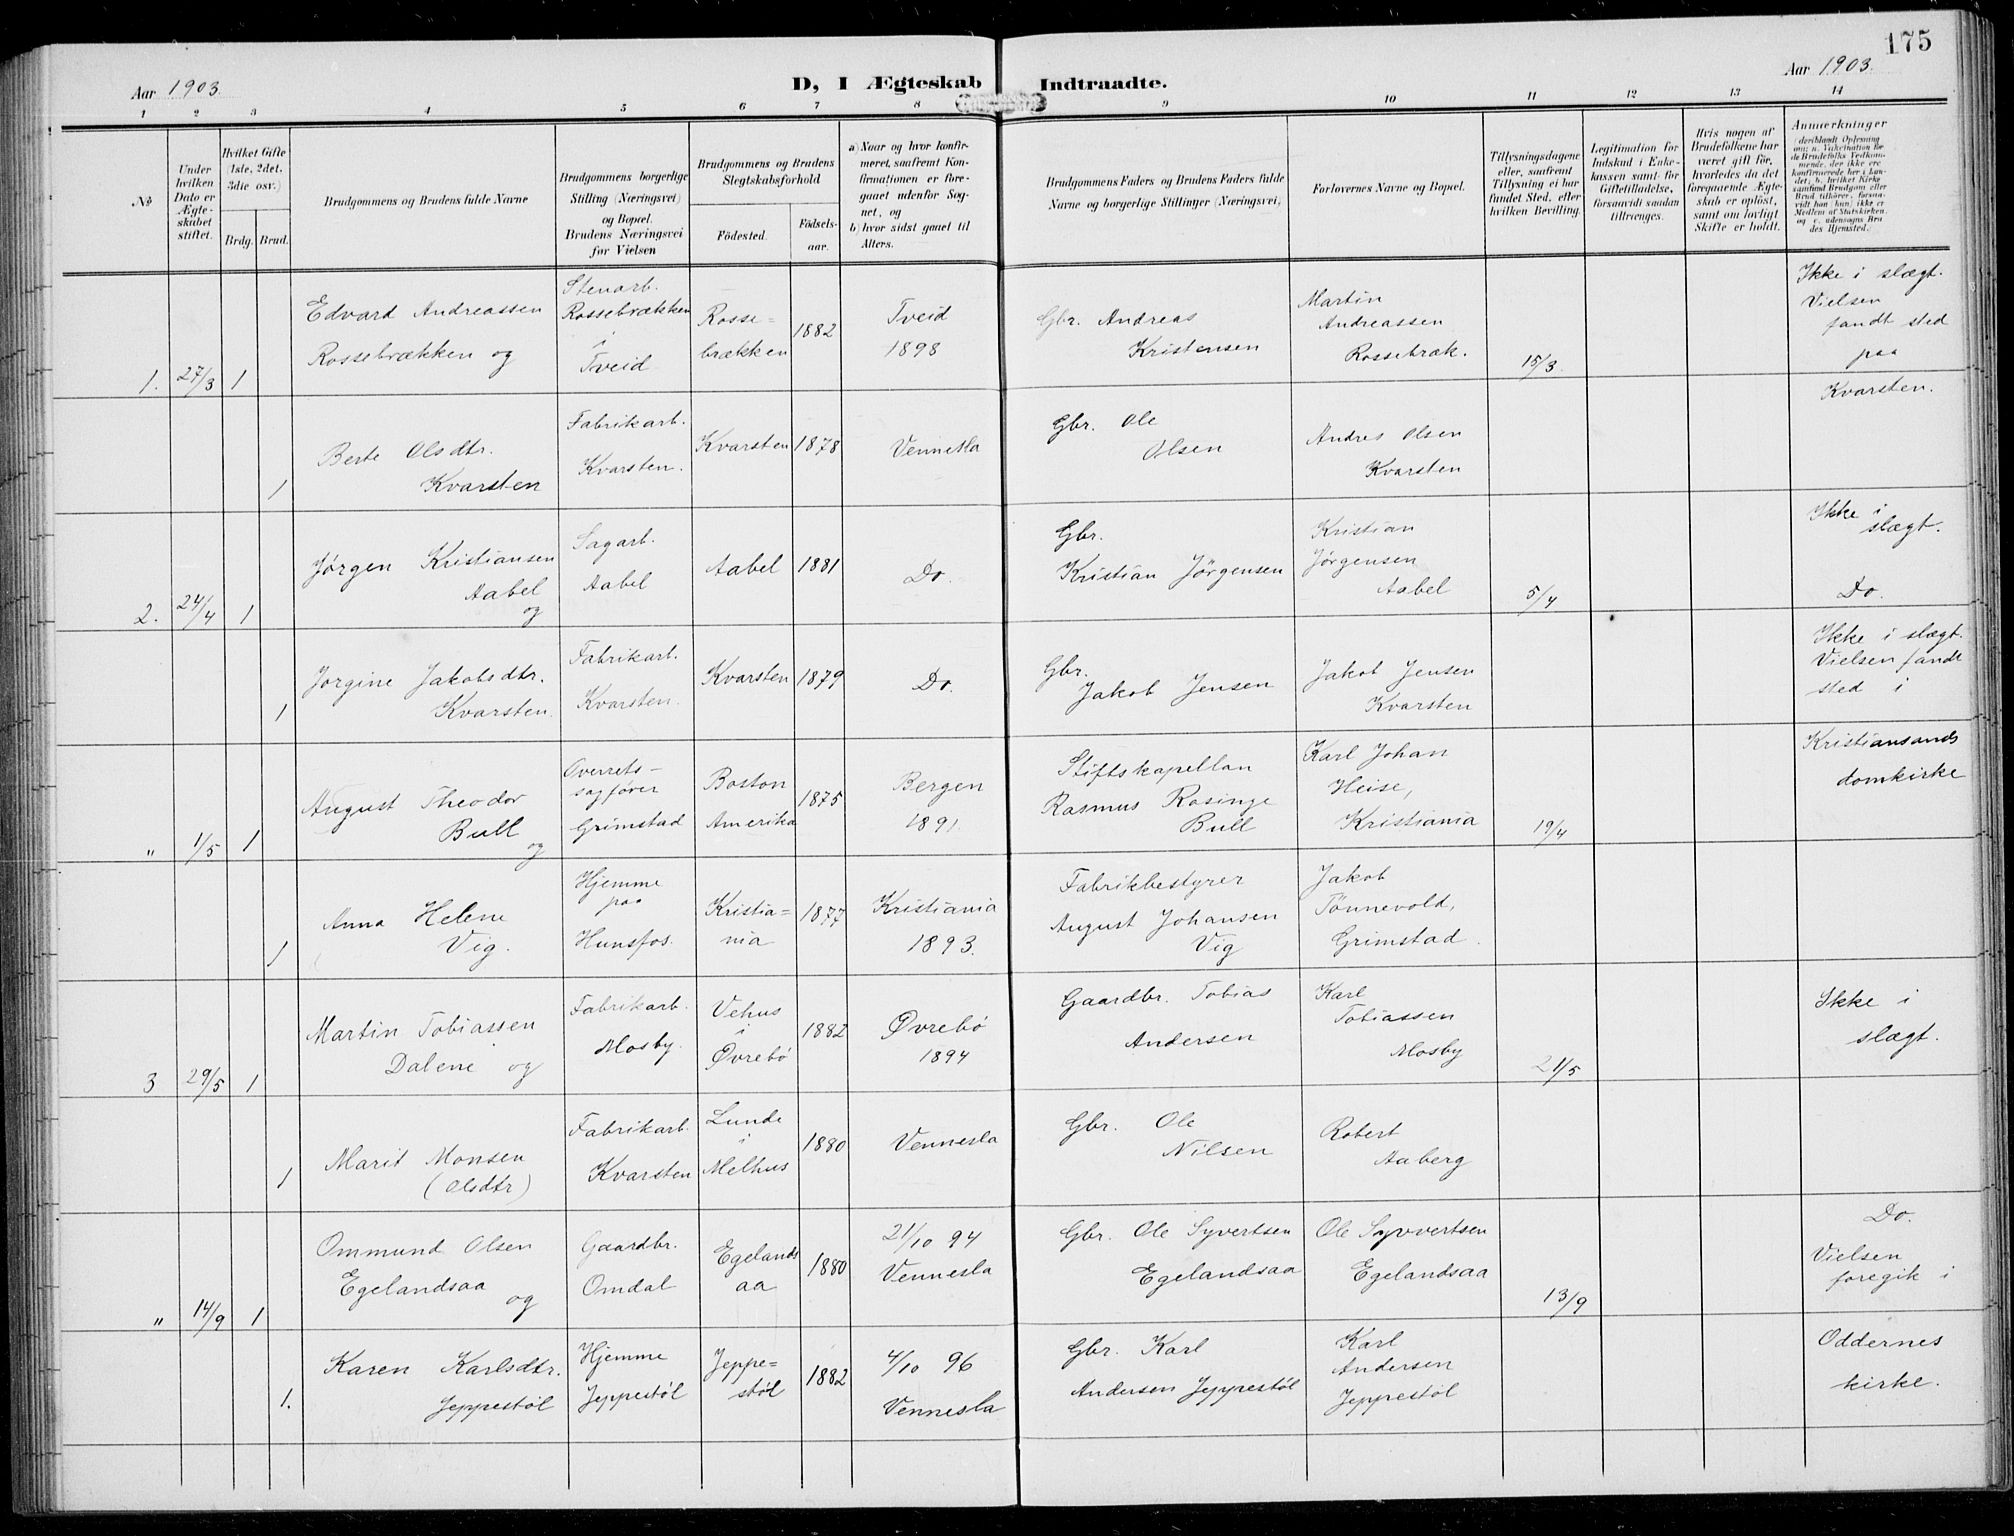 175
Aar 1903.
D, I Ægteskab Indtraadte.
Aar 1903.
1 2 3 4 5 6 7 8 9 10 11 12 13 14
No
Under hvilken Dato er Ægteskabet stiftet.
Hvilket Gifte (1ste, 2det, 3die osv.)
Brdg. Brud.
Brudgommens og Brudens fulde Navne
Brudgommens borgerlige Stilling (Næringsvei) og Bopæl. Brudens Næringsvei før Vielsen
Brudgommens og Brudens Slegtskabsforhold
Fødested.
Fødselsaar.
a) Naar og hvor konfirmeret, saafremt Konfirmationen er foregaaet udenfor Sognet, og
b) hvor sidst gaaet til Alters.
Brudgommens Faders og Brudens Faders fulde Navne og borgerlige Stillinger (Næringsvei)
Forlovernes Navne og Bopæl.
Tillysningsdagene eller, saafremt Tillysning ei har fundet Sted, efter hvilken Bevilling.
Legitimation for Indskud i Enkekassen samt for Giftetilladelse, forsaavidt saadan tiltrænges.
Hvis nogen af Brudefolkene har været gift før, hvorledes da det foregaaende Ægteskab er opløst, samt om lovligt Skifte er holdt.
Anmærkninger
1. 27/3 1
Edvard Andreassen
Rossebrækken og
Stenarb.
Rossebrækken
i
Tveid
Rosse=
brækken
1882
Tveid
1898
Gbr. Andreas
Kristensen
Martin
Andreassen
Rossebræk.
15/3.
Ikke i slægt.
Vielsen
fandt sted
paa
Kvarsten.
1
Berte Olsdtr.
Kvarsten
Fabrikarb.
Kvarsten.
Kvarsten
1878
Vennesla
Gbr. Ole
Olsen
Andres Olsen
Kvarsten
2. 24/4 1
Jørgen Kristiansen
Aabel
og
Sagarb.
Aabel
Aabel
1881
Do.
Gbr.
Kristian Jörgensen
Kristian
Jørgensen
Aabel
5/4
Ikke i
slægt.
Do.
1
Jørgine Jakobsdtr.
Kvarsten.
Fabrikarb.
Kvarsten.
Kvarsten
1879
Do.
Gbr.
Jakob Jensen
Jakob Jensen
Kvarsten
Ikke i slægt.
Vielsen fandt
sted i
Kristiansands
domkirke
" 1/5 1
August Theodor
Bull
og
Overrets-
sagfører
Grimstad
Boston
Amerika
1875
Bergen
1891.
Stiftskapellan
Rasmus Rosinge
Bull
Karl Johan
Heise,
Kristiania
19/4
1
Anna Helene
Vig.
Hjemme
paa
Hunsfos.
Kristia=
nia
1877
Kristiania
1893.
Fabrikbestyrer
August Johansen
Vig
Jakob
Tönnevold,
Grimstad.
3 29/5 1
Martin Tobiassen
Dalene og
Fabrikarb.
Mosby.
Vehus
i
Øvrebö
1882
Øvrebö
1894
Gaardbr. Tobias
Andersen
Karl
Tobiassen
Mosby
21/5
Ikke i
slægt.
1
Marit Monsen
(Olsdtr)
Fabrikarb.
Kvarsten
Lunde
i
Melhus
1880
Vennesla
Gbr. Ole
Nilsen
Robert
Aaberg
" 14/9 1
Ommund Olsen
Egelandsaa
og
Gaardbr.
Omdal
Egelands
aa
1880
21/10 94
Vennesla
Gbr. Ole Syvertsen
Egelandsaa
Ole Syvvertsen
Egelandsaa
13/9
Do.
Vielsen
foregik i
Oddernes
kirke.
1.
Karen Karlsdtr.
Jeppestøl
Hjemme
Jeppestöl
Jeppe=
støl
1882
4/10 96
Vennesla
Gbr. Karl
Andersen Jeppestöl
Karl
Andersen
Jeppestöl